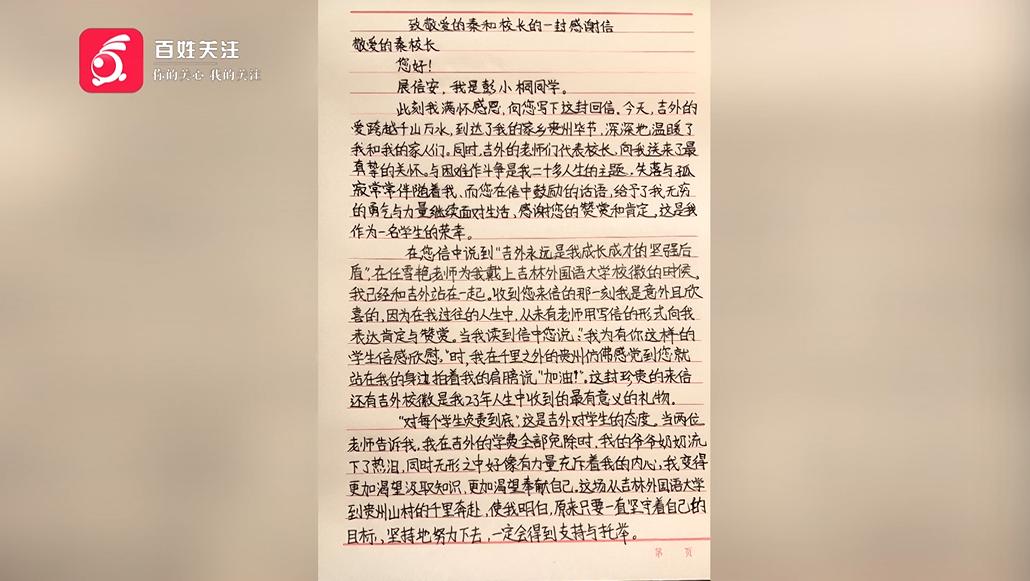 百姓关注
你的关心 我的关注
致敬爱的秦和校长的一封感谢信
敬爱的秦校长
您好！
展信安，我是彭小桐同学。
此刻我满怀感恩，向您写下这封回信。今天，吉外的
爱跨越千山万水，到达了我的家乡贵州毕节，深深地温暖了
我和我的家人们。同时，吉外的老师们代表校长，向我送来了最
真挚的关怀。与困难作斗争是我二十多人生的主题，失落与孤
寂常常伴随着我、而您在信中鼓励的话语，给予了我无穷
的勇气与力量继续面对生活、感谢您的赞赏和肯定，这是我
作为一名学生的荣幸。
在您信中说到“吉外永远是我成长成才的坚强后
盾”，在任雪艳老师为我戴上吉林外国语大学校徽的时候，
我已经和吉外站在一起。收到您来信的那一刻我是意外且欣
喜的，因为在我过往的人生中，从未有老师用写信的形式向我
表达肯定与赞赏。当我读到信中您说：“我为有你这样的
学生倍感欣慰，”时，我在千里之外的贵州仿佛感觉到您就
站在我的身边拍着我的肩膀说“加油！”。这封珍贵的来信
还有吉外校徽是我23年人生中收到的最有意义的礼物。
“对每个学生负责到底”，这是吉外对学生的态度。当两位
老师告诉我，我在吉外的学费全部免除时，我的爷爷奶奶流
下了热泪，同时无形之中好像有力量充斥着我的内心，我变得
更加渴望汲取知识，更加渴望奉献自己。这场从吉林外国语大学
到贵州山村的千里奔赴，使我明白，原来只要一直坚守着自己的
目标、坚持地努力下去，一定会得到支持与托举。
第 页